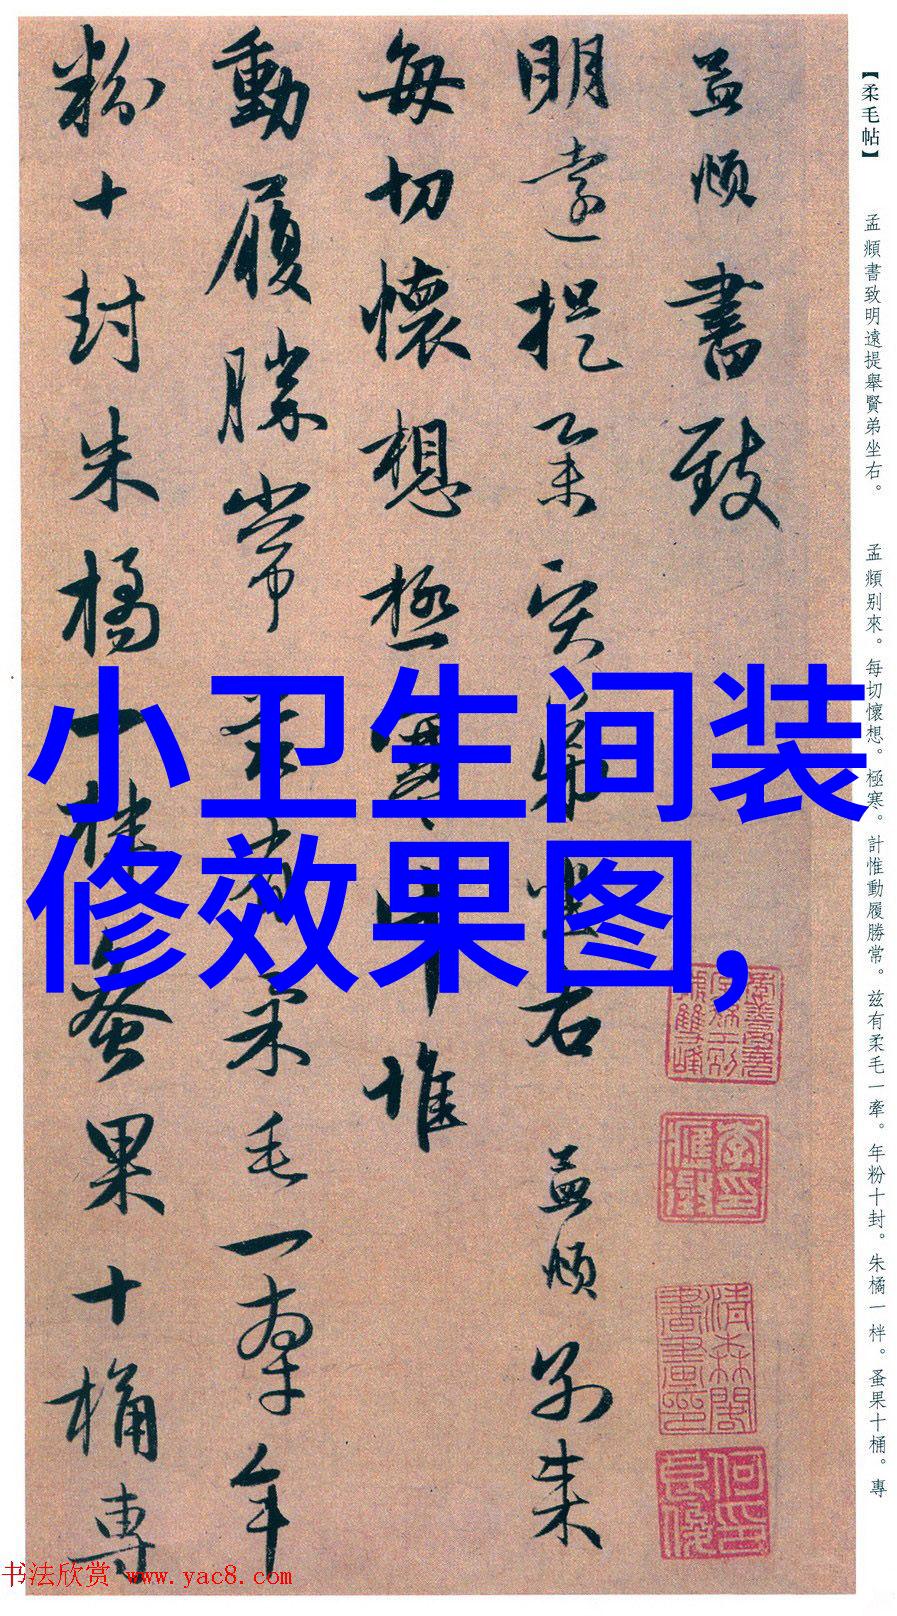 孟頫書致
明遠提舉賢弟坐右 孟頫別來
每切懷想極寒計惟
動履勝常茲有柔毛一牽年
粉十封朱橘一柈蚤果十桶專
【柔毛帖】
孟頫書致明遠提舉賢弟坐右。 孟頫别來。每切懷想。極寒。計惟動履勝常。兹有柔毛一牽。年粉十封。朱橘一柈。蚤果十桶。專
小卫生间装
修效果图,
书法欣赏 www.yac8.com